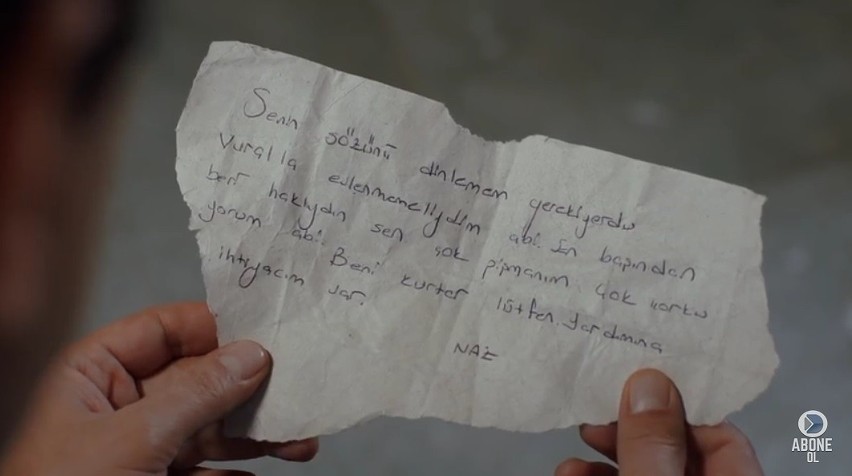 Senin sözünü dinlemem gerekiyordu
Vuralla evlenmemeliydim abi. Sen başından
beri haklıydın sen çok pişmanım. Çok korku
yorum abi. Beni kurtar lütfen. Yardımına
ihtiyacım var.
NAZ
ABONE
OL